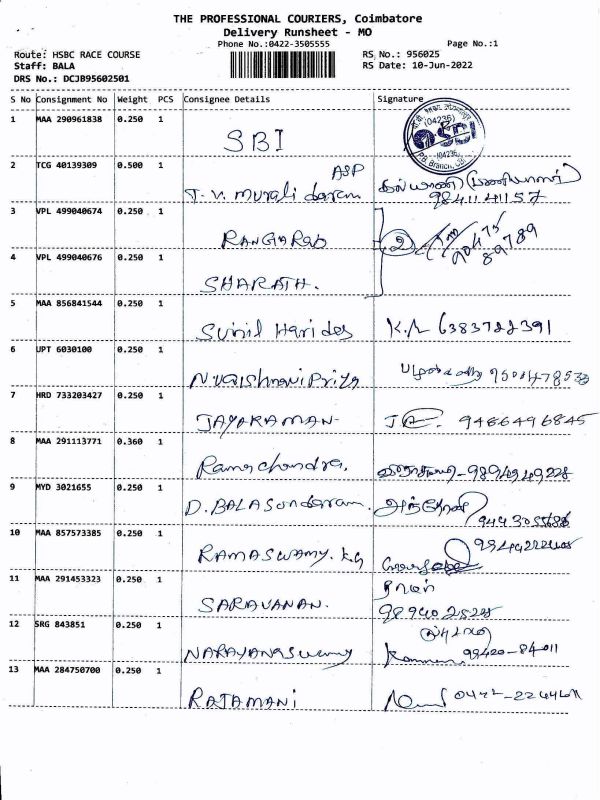 THE PROFESSIONAL COURIERS, Coimbatore
Delivery Runsheet - MO
Phone No.:0422-3505555
Page No.:1
Route: HSBC RACE COURSE
RS No.: 956025
Staff: BALA
RS Date: 10-Jun-2022
DRS No.: DCJB95602501
S No Consignment No Weight PCS Consignee Details Signature
1 MAA 290961838 0.250 1 SBI
(04236)
SBI
(04236)
2 TCG 40139309 0.500 1 T.V. Murali daram ASP
3 VPL 499040674 0.250 1 RANGARAO
90475
89789
4 VPL 499040676 0.250 1 SHARATH.
5 MAA 856841544 0.250 1 Sunil Harides K.R 6383722391
6 UPT 6030100 0.250 1 N.Vaishnavi Priya
7 HRD 733203427 0.250 1 JAYARAMAN- 9486496845
8 MAA 291113771 0.360 1 Rama chandra.
9 MYD 3021655 0.250 1 D. BALASundaram.
10 MAA 857573385 0.250 1 RAMASWAMY. KG
11 MAA 291453323 0.250 1 SARAVANAN.
12 SRG 843851 0.250 1 NARAYANASwamy 99420-84011
13 MAA 284750700 0.250 1 RAJAMANI